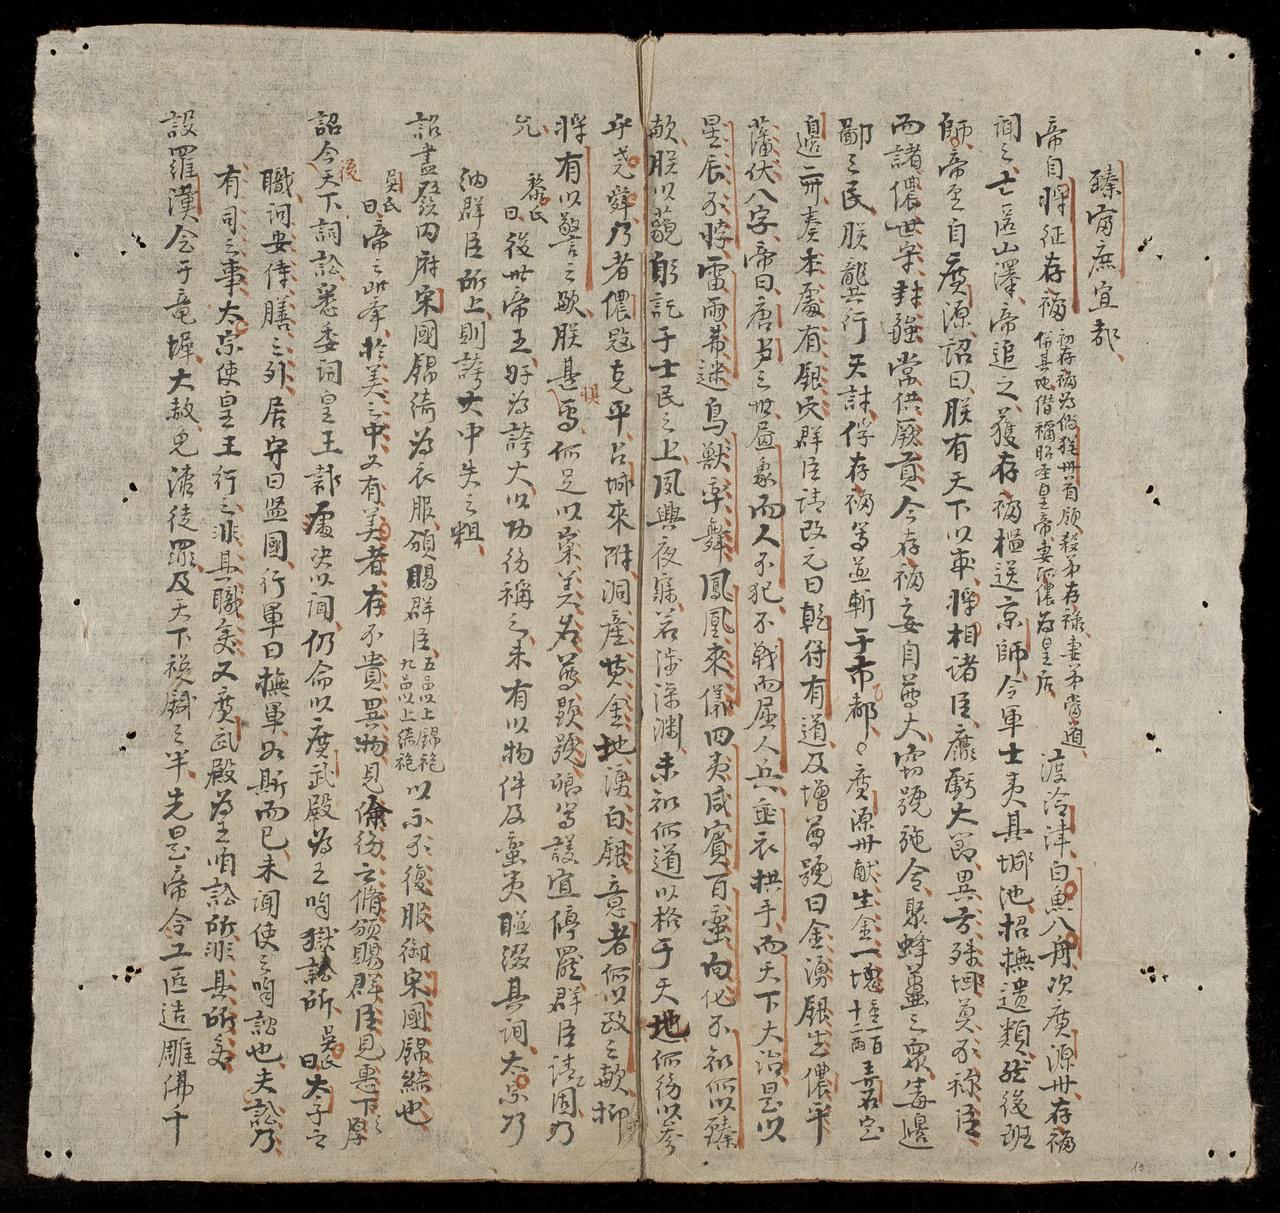 臻富庶宜都
帝自將征存福初存福為儻猶州首領殺弟存祿妻弟當道
併其地僭稱昭聖皇帝妻阿儂為皇后渡泠津白魚入舟次廣源州存福
聞之亡匿山澤帝追之獲存福檻送京師令軍士夷其城池招撫遺類然後班
師帝至自廣源詔曰朕有天下以來將相諸臣靡虧大節異方殊域莫不称臣
而諸儂世守封疆常供厥貢今存福妄自尊大窃號施令聚蜂蠆之衆毒邊
鄙之民朕龔行天討俘存福等並斬于市都廣源州献生金一塊重一百
十二两弄石宕
邊二州奏本處有銀穴群臣請改元曰乾符有道及增尊號曰金湧銀生儂平
藩伏八字帝曰唐虞之世畫象而人不犯不戰而屈人兵垂衣拱手而天下大治是以
星辰不悖雷雨弗迷鳥獸率舞鳳凰來儀四夷咸賓百蛮向化不知何以臻
歟朕以藐躬託于士民之上夙興夜寐若涉深淵未知何道以格于天地何徳以參
乎尭舜乃者儂冦克平占城來附洞産黄金地湧白銀意者何以致之歟抑
將有以警之歟朕甚惧焉何足以崇美名尊顕號卿等議宜停罷群臣請固乃
允
黎氏曰後世帝王好為誇大以功徳稱之未有以物件及蛮夷聮綴其詞太宗乃
納群臣所上則誇大中失之粗
詔盡發内府宋國錦綺為衣服頒賜群臣五品以上錦袍
九品以上綺袍以示不復服御宋國錦綺也
吳氏曰帝之此舉於美之中又有美者存不貴異物見儉徳之脩頒賜群臣見惠下之厚
詔今後天下詞訟悉委詞皇王報處决以聞仍命以廣武殿為王問獄訟所吳氏曰太子之
職詞安侍膳之外居守曰監國行軍曰撫軍如斯而已未聞使之問訟也夫訟乃
有司之事太宗使皇王行之非其職矣又廣武殿為王問訟所非其所矣
設羅漢会于竜墀大赦免流徒罪及天下稅錢之半先是帝令工匠造雕佛千